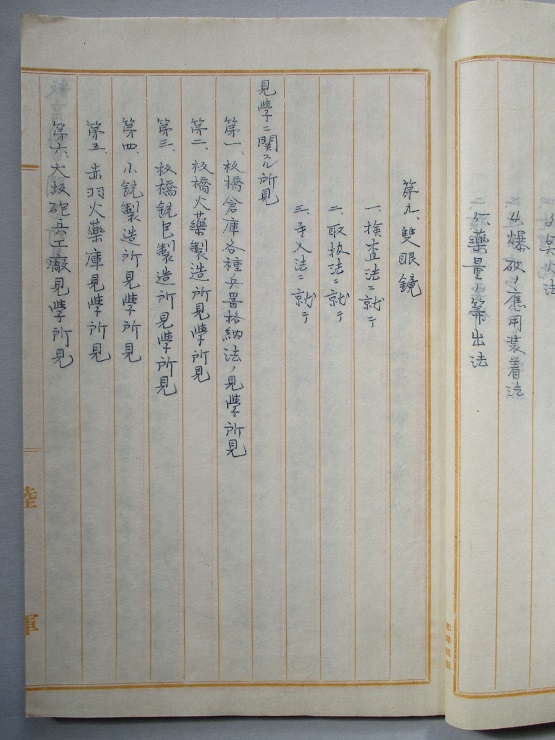 点火法
爆破ノ應用装着法
藥量ノ算出法
第九、雙眼鏡
一、検査法ニ就テ
二、取扱法ニ就テ
三、手入法ニ就テ
見學ニ関スル所見
第一、板橋倉庫各種兵器格納法ノ見學所見
第二、板橋火藥製造所見學所見
第三、板橋銃包製造所見學所見
第四、小銃製造所見學所見
第五、赤羽火藥庫見學所見
第六、大阪砲兵工廠見學所見
陸軍